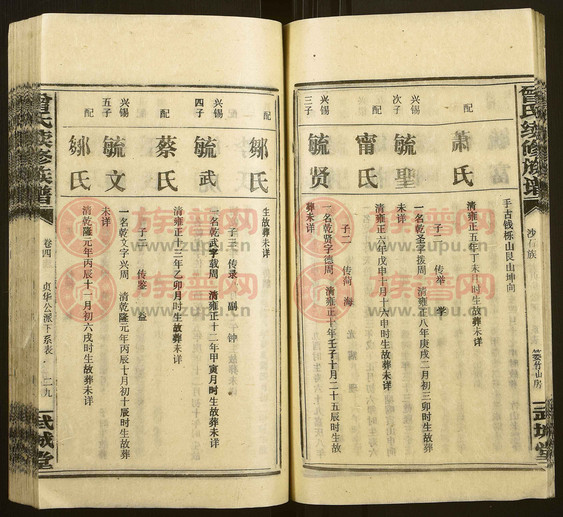 曾氏续修族谱
武城堂
手古钱栎山艮山坤向
配
萧氏
清雍正五年丁未月时生故葬未详
子二
传举
学
兴锡
次子
毓圣
一名乾圣字拨周
清雍正八年庚戌二月初三卯时生故葬未详
配
甯氏
清雍正六年戊申十月十六申时生故葬未详
子二
传菏
海
兴锡
三子
毓贤
一名乾贤字德周
清雍正十年壬子十月二十五辰时生故
葬未详
配
邹氏
生故葬未详
子三
传录
副
钟
兴锡
四子
毓武
一名乾武字载周
清雍正十二年甲寅月时生故葬未详
配
蔡氏
清雍正十三年乙卯月时生故葬未详
子二
传鉴
益
兴锡
五子
毓文
一名乾文字兴周
清乾隆元年丙辰十月初十辰时生故葬
未详
配
邹氏
清乾隆元年丙辰十一月初六戌时生故葬未详
曾氏续修族谱
卷四
贞华公派下系表
二九
武城堂
族谱网
www.zupu.cn
族谱网
www.zupu.cn
族谱网
www.zupu.cn
族谱网
www.zupu.cn